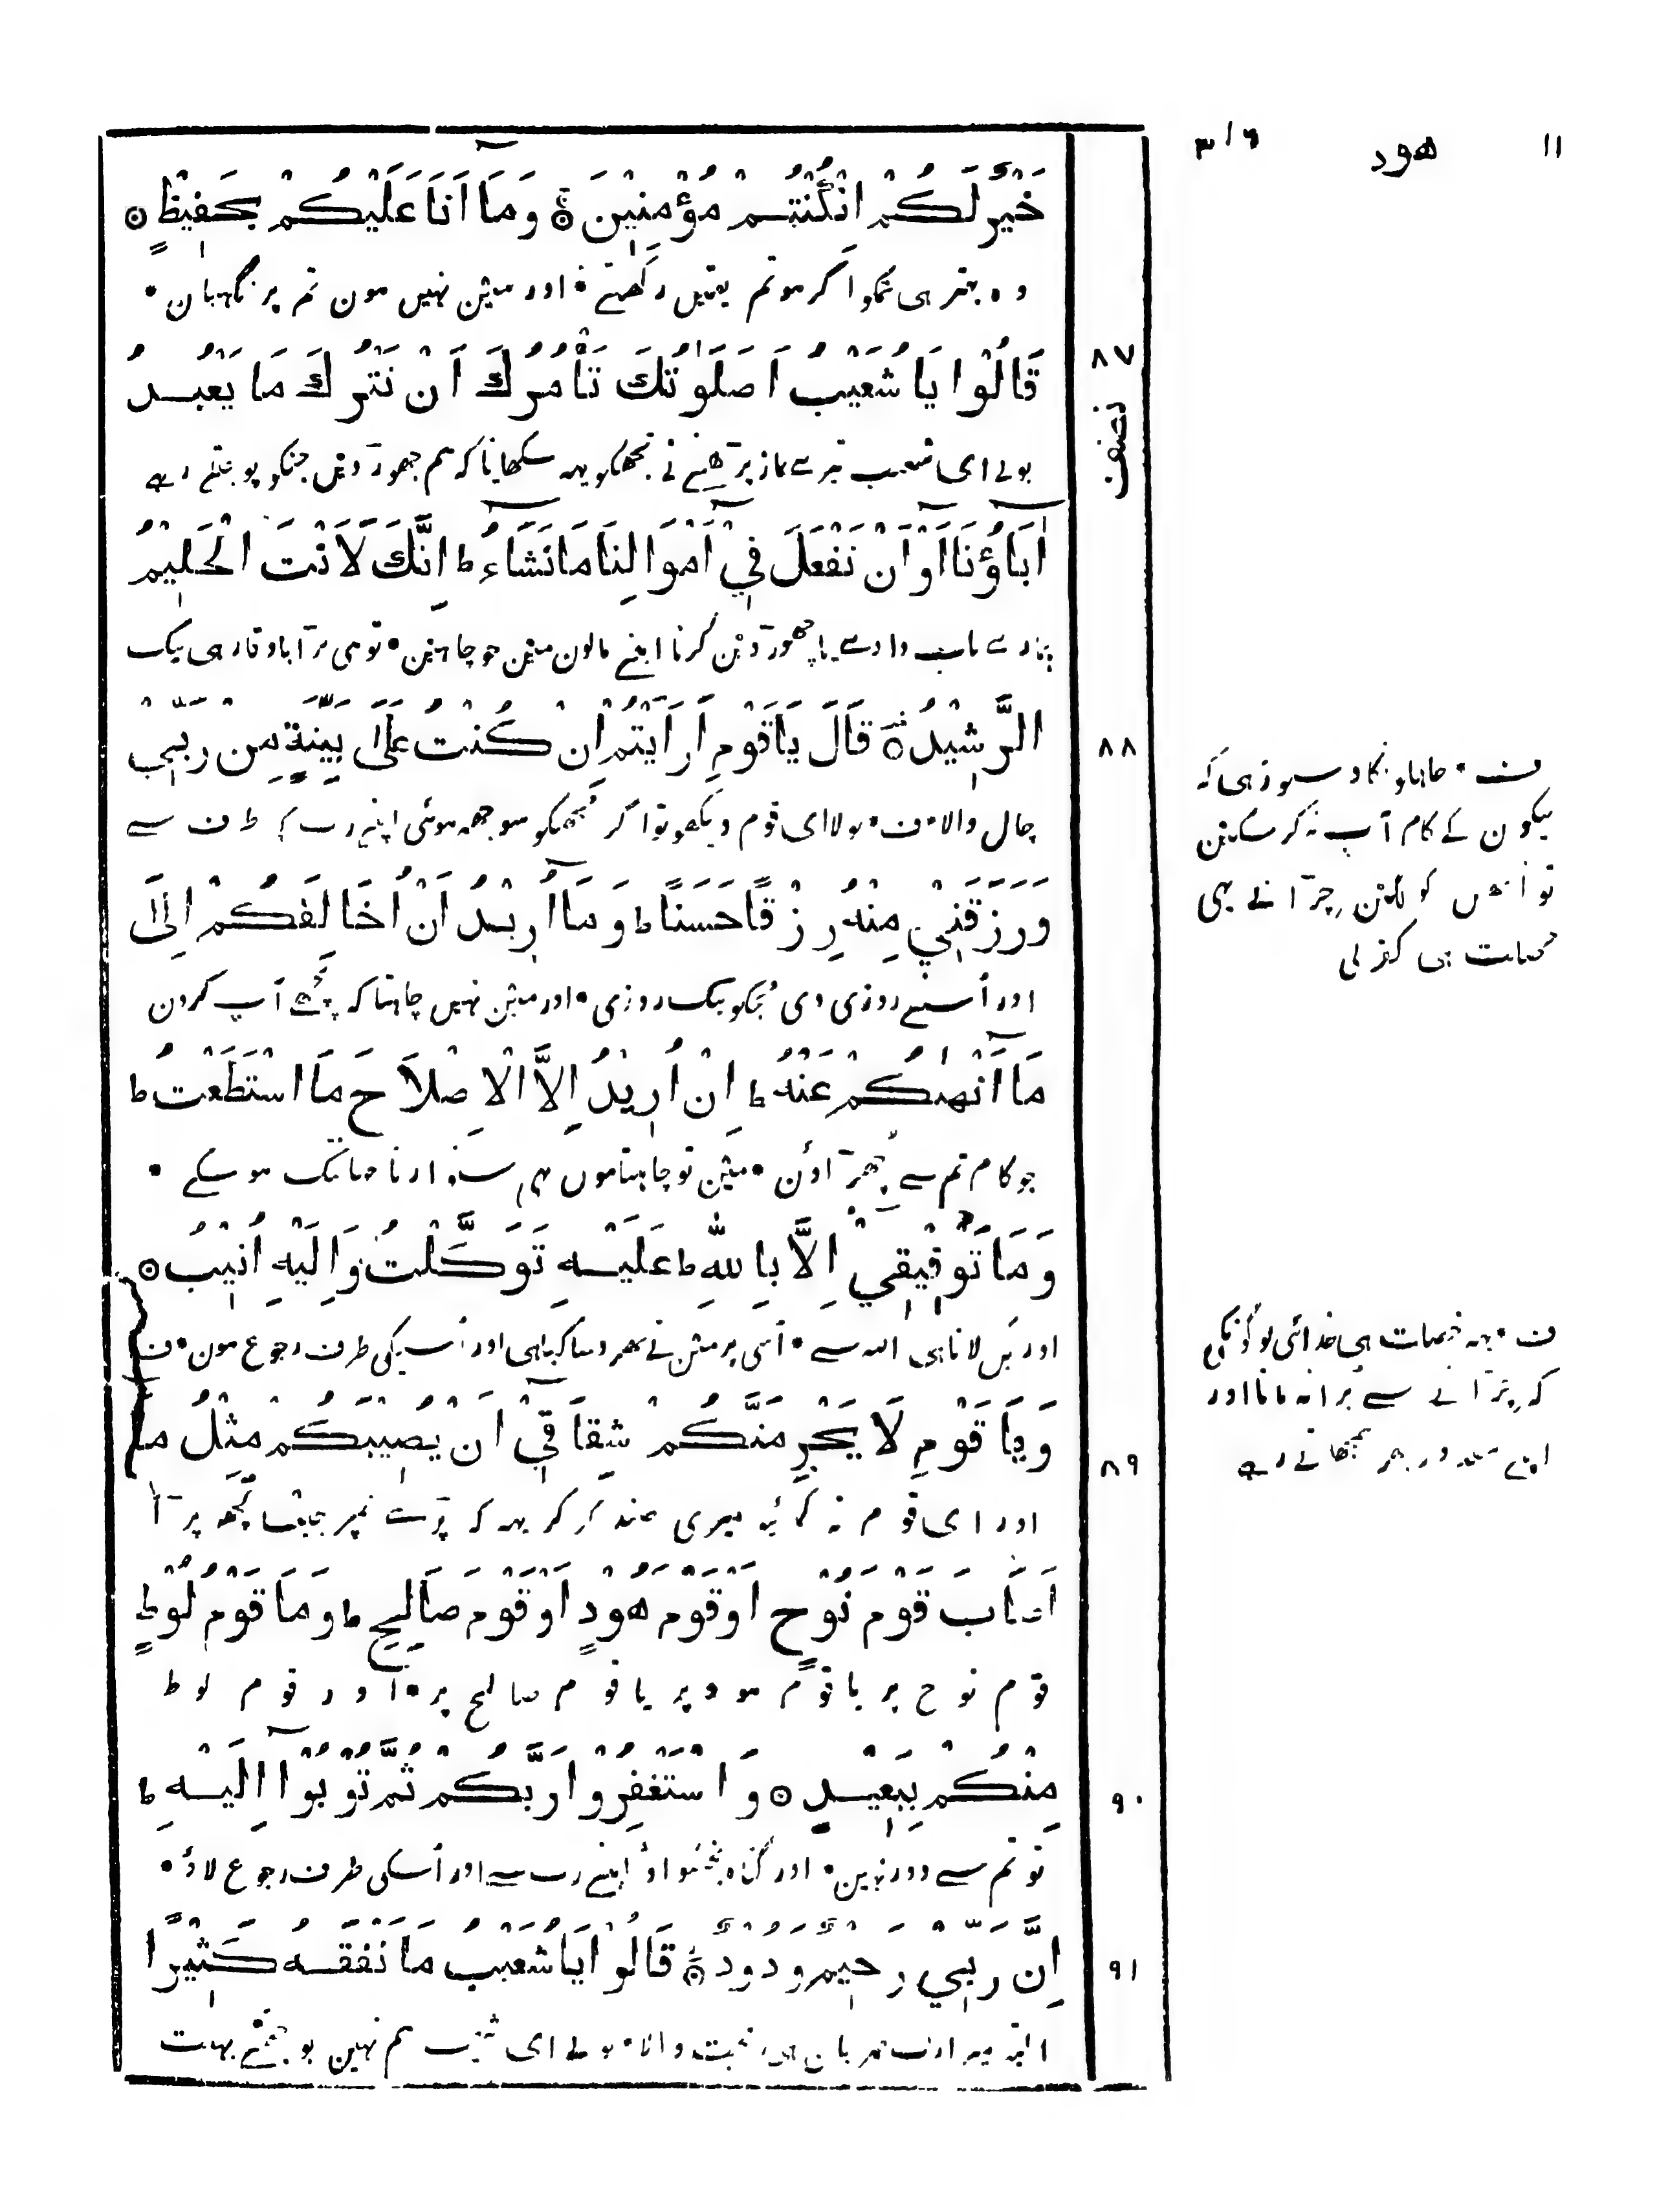 ١١ هود ٣١٦
خَيْرٌ لَّكُمْ اِنْ كُنْتُمْ مُؤْمِنِيْنَ ۚ وَمَآ اَنَا عَلَيْكُمْ بِحَفِيْظٍ ۝
وہ بہتر ہی تمکو اگر ہو تم یقین رکھتے • اور مین نہیں ہون تم پر نگہبان •
٨٧
قَالُوْا يَا شُعَيْبُ اَصَلَوٰتُكَ تَأْمُرُكَ اَنْ نَتْرُكَ مَا يَعْبُدُ
نصف
بولے ای شعیب تیرے نماز پڑھنے نے تجھکو یہہ سکھایا کہ ہم چھوڑ دین جنکو پوجتے رہے
اٰبَاؤُنَا اَوْ اَنْ نَفْعَلَ فِيْٓ اَمْوَالِنَا مَا نَشَآءُ ط اِنَّكَ لَاَنْتَ الْحَلِيْمُ
ہمارے باپ دادے یا چھوڑ دین کرنا اپنے مالون مین جو چاہین • توہی بڑا باوقار ہی نیک
٨٨
الرَّشِيْدُ ۝ قَالَ يَا قَوْمِ اَرَاَيْتُمْ اِنْ كُنْتُ عَلَىٰ بَيِّنَةٍ مِنْ رَبِّيْ
چال والا • ف • بولا ای قوم دیکھو تو اگر مجھکو سوجھہ ہوئی اپنے رب کی طرف سے
وَرَزَقَنِيْ مِنْهُ رِزْقًا حَسَنًا ط وَمَآ اُرِيْدُ اَنْ اُخَالِفَكُمْ اِلَىٰ
اور اُسنے روزی دی مجکو نیک روزی • اور مین نہیں چاہتا کہ پیچھے آپ کرون
مَآ اَنْهٰكُمْ عَنْهُ ط اِنْ اُرِيْدُ اِلَّا الْاِصْلَاحَ مَا اسْتَطَعْتُ ط
جو کام تم سے چھڑاؤن • مین تو چاہتا ہوں سنوارنا جہانتک ہو سکے •
وَمَا تَوْفِيْقِيْٓ اِلَّا بِاللّٰهِ ط عَلَيْهِ تَوَكَّلْتُ وَاِلَيْهِ اُنِيْبُ ۝
اور بَن لانا ہی اللہ سے • اُسی پر مین نے بھروسا کیا ہی اور اُسیکی طرف رجوع ہون • ف
٨٩
وَيَا قَوْمِ لَا يَجْرِمَنَّكُمْ شِقَاقِيْٓ اَنْ يُصِيْبَكُمْ مِثْلُ مَآ
اور ای قوم نہ کمائیو میری ضد کر کر یہہ کہ پڑے تمپر جیسا کچھہ پڑا
اَصَابَ قَوْمَ نُوْحٍ اَوْ قَوْمَ هُوْدٍ اَوْ قَوْمَ صَالِحٍ ط وَمَا قَوْمُ لُوْطٍ
قوم نوح پر یا قوم ہود پر یا قوم صالح پر • اور قوم لوط
٩٠
مِنْكُمْ بِبَعِيْدٍ ۝ وَاسْتَغْفِرُوْا رَبَّكُمْ ثُمَّ تُوْبُوْٓا اِلَيْهِ ط
تو تم سے دور نہین • اور گناہ بخشواؤ اپنے رب سے اور اُسکی طرف رجوع لاؤ •
٩١
اِنَّ رَبِّيْ رَحِيْمٌ وَدُوْدٌ ۝ قَالُوْا يَا شُعَيْبُ مَا نَفْقَهُ كَثِيْرًا
البتہ میرا رب مہربان ہی محبت والا • بولے ای شعیب ہم نہین بوجھتے بہت
ف • جاہلونکا دستور ہی کہ
نیکون کے کام آپ نہ کر سکین
تو انھیں کو لگین چڑانے یہی
خصلت ہی کفر کی
ف • یہہ خصلت ہی خدائی لوگونکی
کہ چڑانے سے بُرا نہ مانا اور
اپنے مقدور بھر سمجھاتے رہے